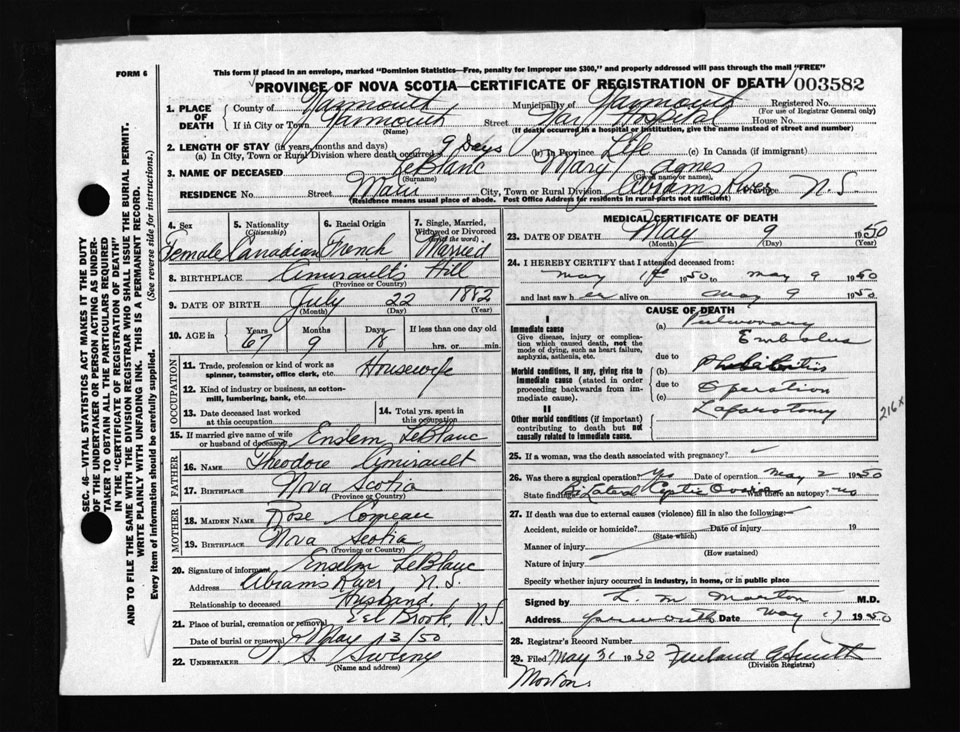 FORM 6
This form if placed in an envelope, marked "Dominion Statistics—Free, penalty for improper use $300," and properly addressed will pass through the mail "FREE"
PROVINCE OF NOVA SCOTIA—CERTIFICATE OF REGISTRATION OF DEATH 003582
1. PLACE OF DEATH
County of Yarmouth Municipality of Yarmouth Registered No. (For use of Registrar General only)
If in City or Town Yarmouth (Name) Street Yar Hospital House No.
(If death occurred in a hospital or institution, give the name instead of street and number)
2. LENGTH OF STAY (in years, months and days)
(a) In City, Town or Rural Division where death occurred 9 Days (b) In Province Life (c) In Canada (if immigrant)
3. NAME OF DECEASED LeBlanc (Surname) Mary Agnes (Given name or names)
RESIDENCE No. Street Main City, Town or Rural Division Abrams River Province N.S.
(Residence means usual place of abode. Post Office Address for residents in rural parts not sufficient)
4. Sex Female
5. Nationality (Citizenship) Canadian
6. Racial Origin French
7. Single, Married, Widowed or Divorced (Write the word) Married
8. BIRTHPLACE Amirault's Hill (Province or Country)
9. DATE OF BIRTH July (Month) 22 (Day) 1882 (Year)
10. AGE in Years 67 Months 9 Days 18 If less than one day old hrs. or min.
OCCUPATION
11. Trade, profession or kind of work as spinner, teamster, office clerk, etc. Housewife
12. Kind of industry or business, as cotton-mill, lumbering, bank, etc.
13. Date deceased last worked at this occupation
14. Total yrs. spent in this occupation
15. If married give name of wife or husband of deceased Enslem LeBlanc
FATHER
16. NAME Theodore Amirault
17. BIRTHPLACE Nova Scotia (Province or Country)
MOTHER
18. MAIDEN NAME Rose Comeau
19. BIRTHPLACE Nova Scotia (Province or Country)
20. Signature of informant Enselm LeBlanc
Address Abrams River N.S.
Relationship to deceased Husband.
21. Place of burial, cremation or removal Eel Brook, N.S.
Date of burial or removal May 13/50
22. UNDERTAKER V. S. Sweeny (Name and address)
MEDICAL CERTIFICATE OF DEATH
23. DATE OF DEATH May (Month) 9 (Day) 1950 (Year)
24. I HEREBY CERTIFY that I attended deceased from:
May 1st 1950 to May 9 1950
and last saw her alive on May 9 1950
CAUSE OF DEATH
I
Immediate cause
Give disease, injury or complication which caused death, not the mode of dying, such as heart failure, asphyxia, asthenia, etc.
(a) Pulmonary Embolus
due to
Morbid conditions, if any, giving rise to Immediate cause (stated in order proceeding backwards from immediate cause).
(b) Phlebitis
due to
(c) Operation
II
Other morbid conditions (if important) contributing to death but not causally related to Immediate cause.
Laparotomy
216x
25. If a woman, was the death associated with pregnancy?
26. Was there a surgical operation? Yes Date of operation May 2 1950
State findings Bilateral Cystic Ovaries Was there an autopsy? no
27. If death was due to external causes (violence) fill in also the following:—
Accident, suicide or homicide? (State which) Date of injury 19
Manner of injury (How sustained)
Nature of injury
Specify whether injury occurred in industry, in home, or in public place
Signed by L. M. Morton M.D.
Address Yarmouth Date May 1950
28. Registrar's Record Number
29. Filed May 31 1950 (Division Registrar)
Morton
SEC. 46—VITAL STATISTICS ACT MAKES IT THE DUTY OF THE UNDERTAKER OR PERSON ACTING AS UNDERTAKER TO OBTAIN ALL THE PARTICULARS REQUIRED IN THE "CERTIFICATE OF REGISTRATION OF DEATH" AND TO FILE THE SAME WITH THE DIVISION REGISTRAR WHO SHALL ISSUE THE BURIAL PERMIT.
WRITE PLAINLY WITH UNFADING INK. THIS IS A PERMANENT RECORD.
Every item of information should be carefully supplied. (See reverse side for instructions.)